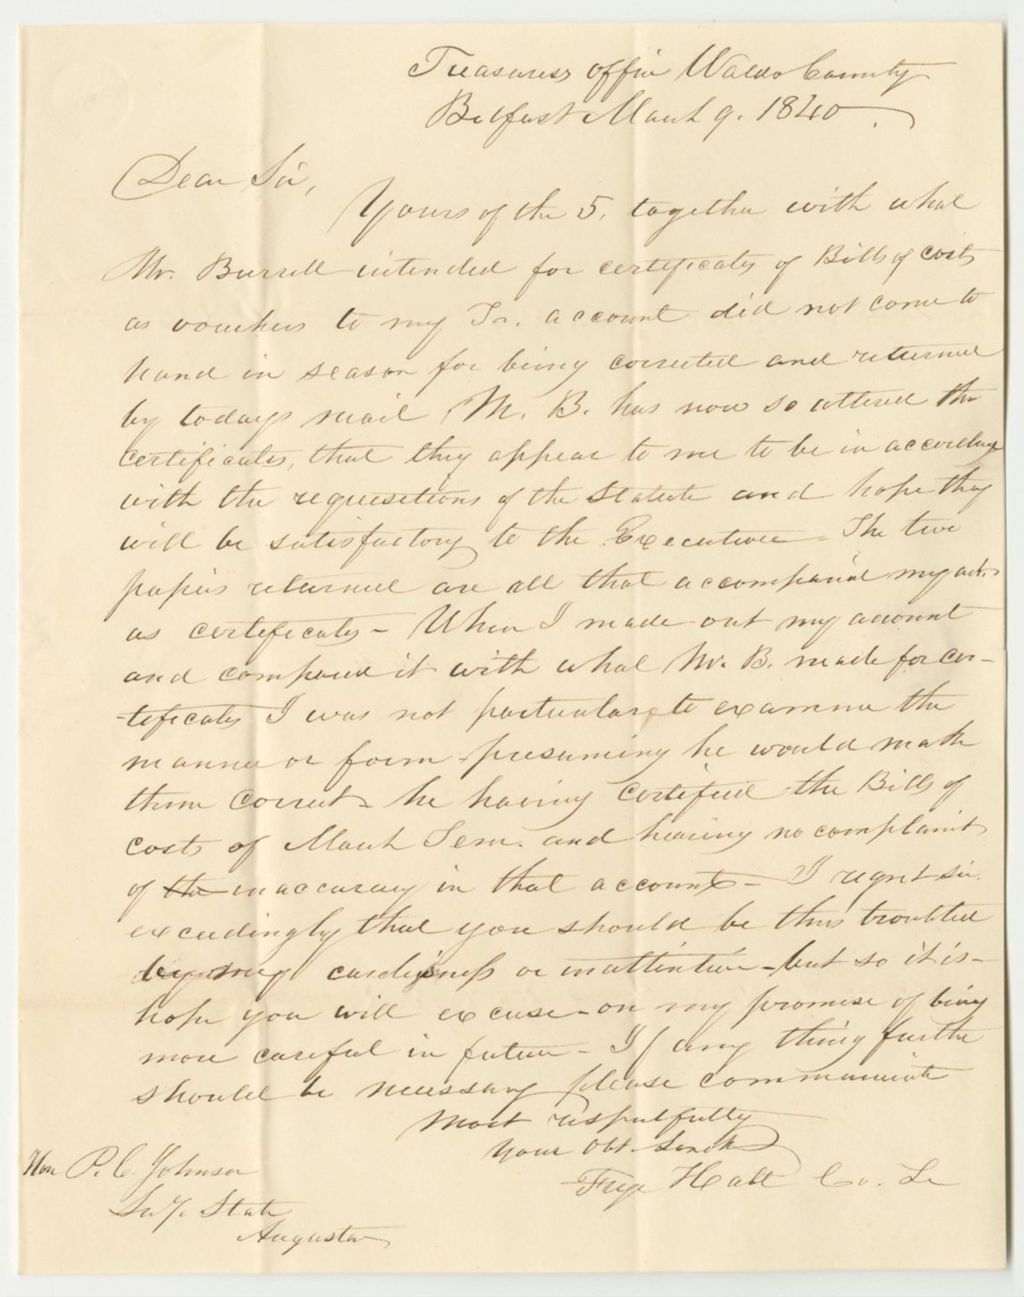 Treasurers office Waldo County
Belfast March 9. 1840.
Dear Sir,
Yours of the 5. together with what
Mr. Burrill intended for certificates of Bills of costs
as vouchers to my Tr. account did not come to
hand in season for being corrected and returned
by todays mail Mr. B. has now so altered the
certificates, that they appear to me to be in accordance
with the requisitions of the Statute and hope they
will be satisfactory to the Executive - The two
papers returned are all that accompanied my act.
as certificates - When I made out my account
and compared it with what Mr. B. made for cer-
-tificates I was not particular to examine the
manner or form - presuming he would make
them correct - he having certified the Bills of
costs of March Term. and hearing no complaint
of the inaccuracy in that account - I regret sir.
exceedingly that you should be thus troubled
by my carelessness or inattention - but so it is -
hope you will excuse - on my promise of being
more careful in future - If any thing further
should be necessary please communicate
Most respectfully
your Obt. Servt
Frye Hall Co. Tr
Hon P. C. Johnson
Secy. State
Augusta